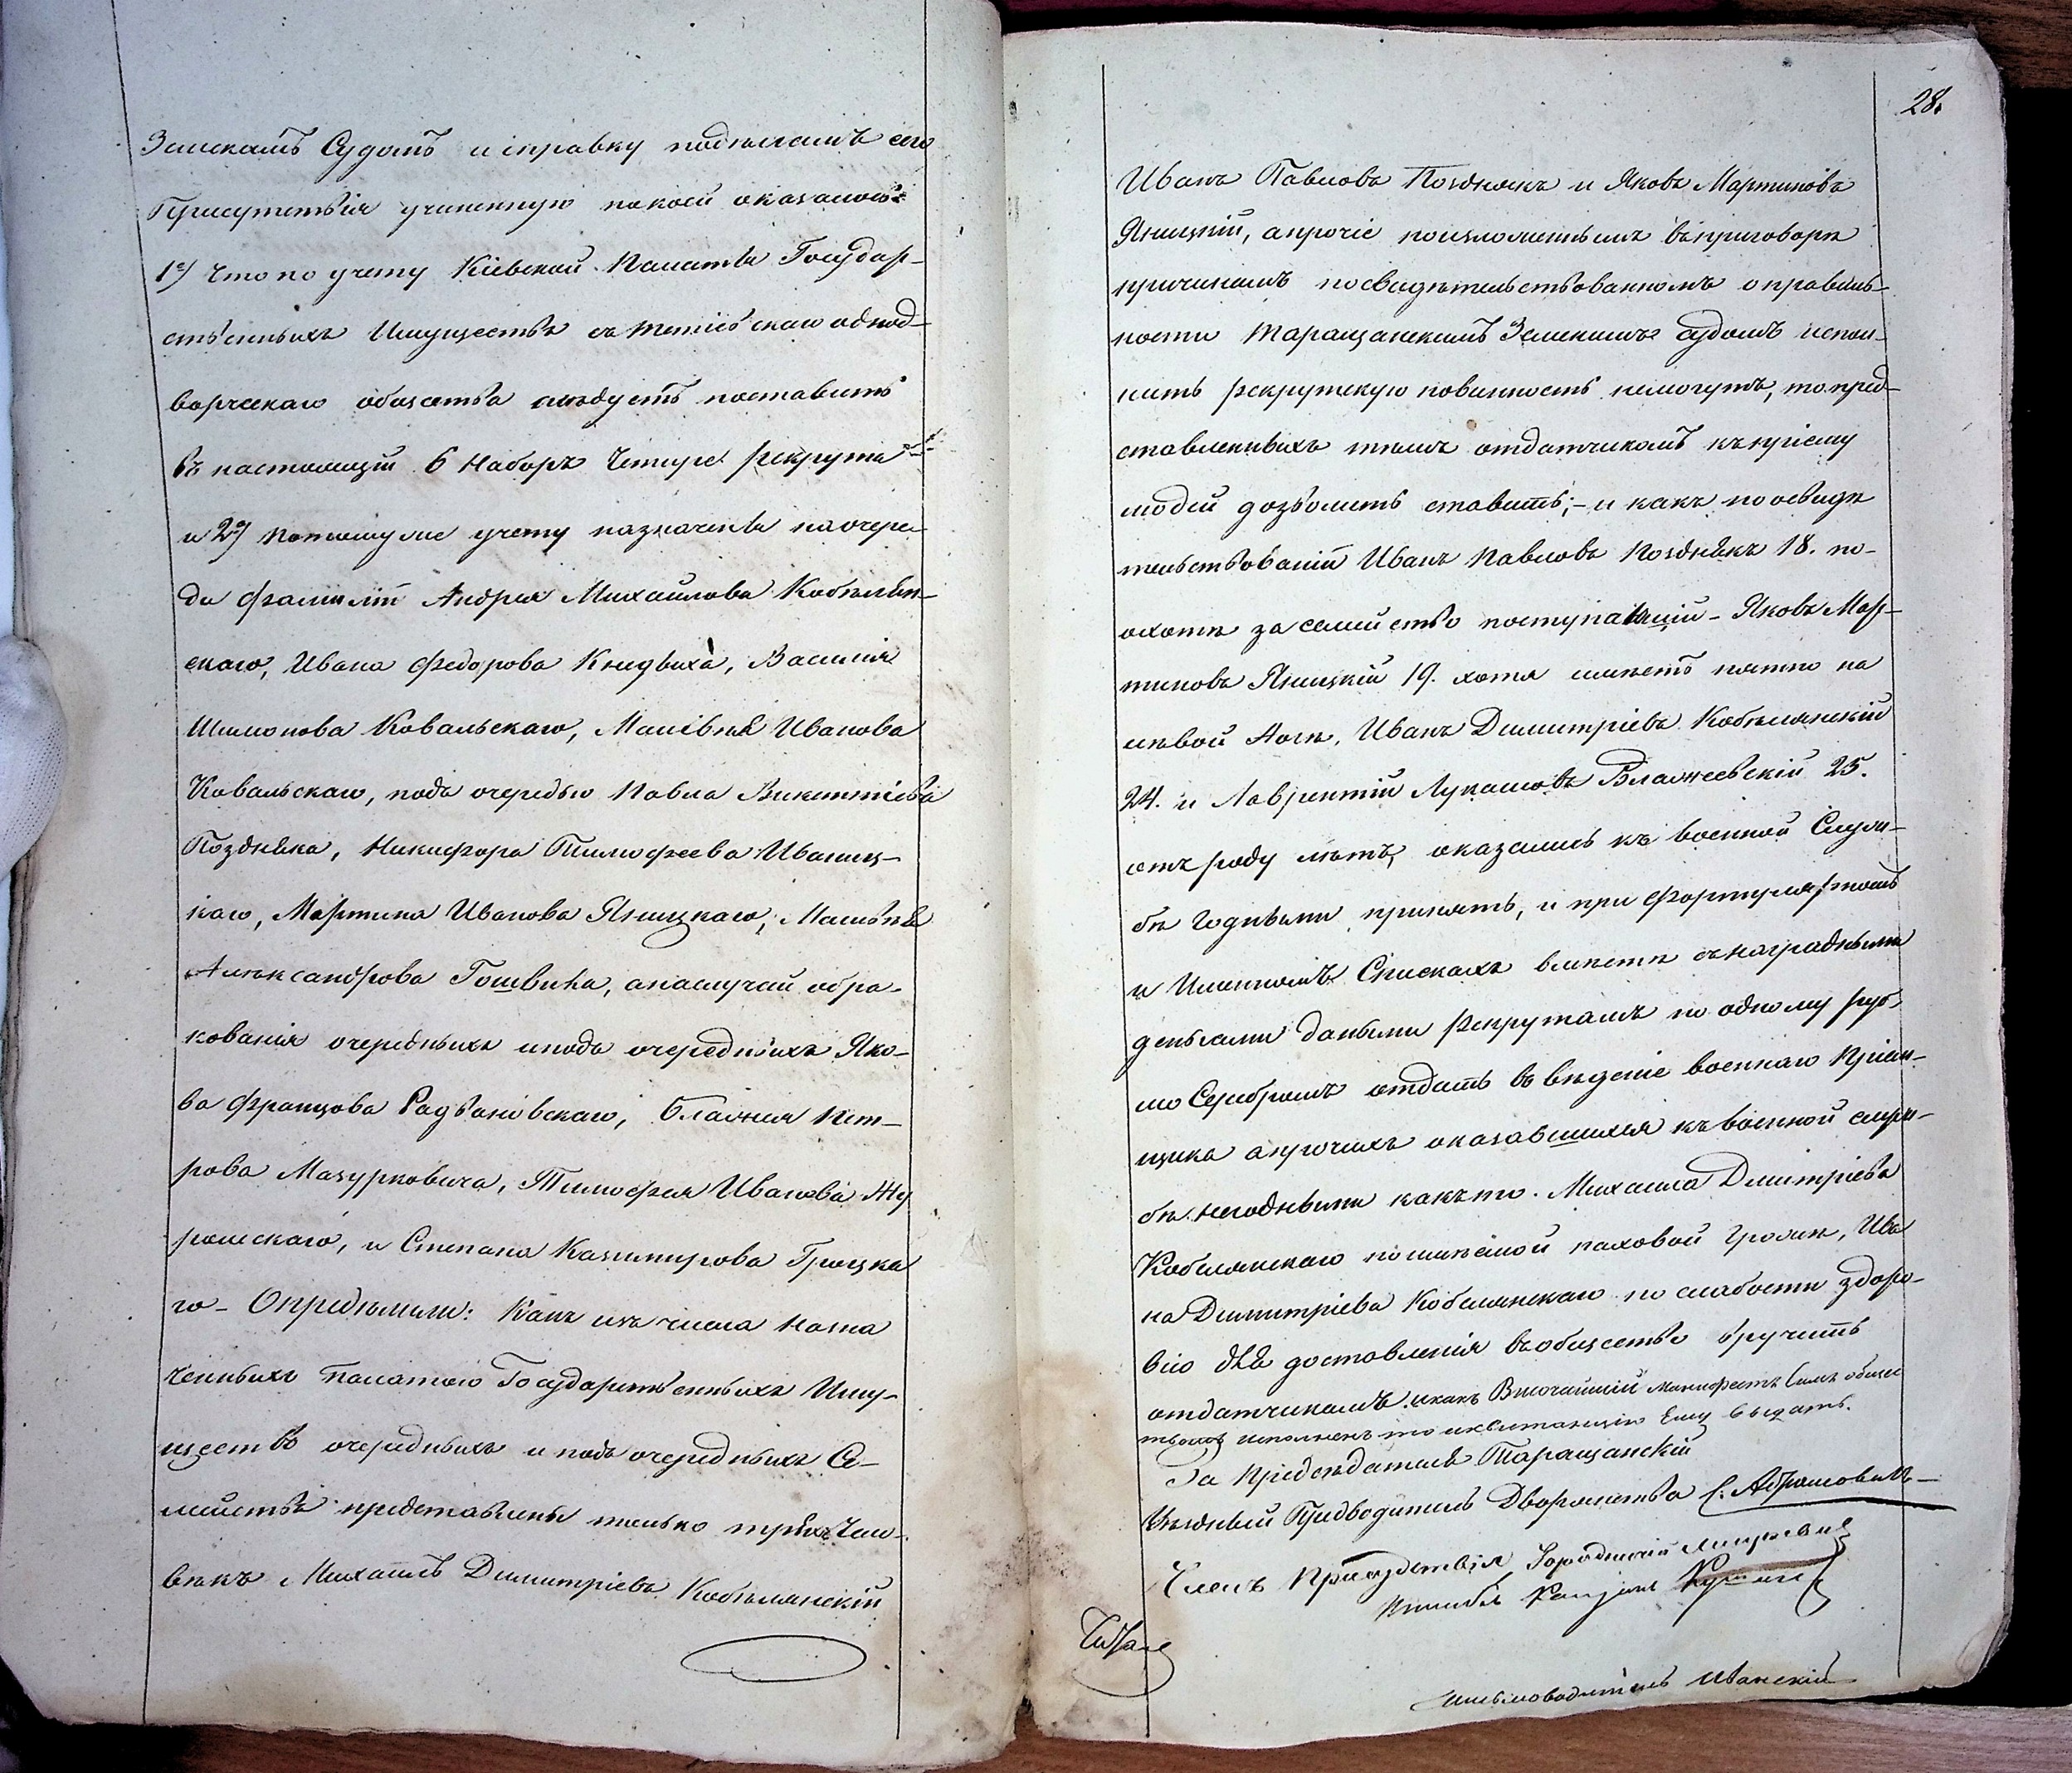 Земскимъ Судомъ и справку подъячимъ сего
Присутствія учиненную по коей оказалось:
1е) Что по учету Кіевской Палаты Государ-
ственныхъ Имуществъ съ однод-
ворческаго общества слѣдуетъ поставить
въ настоящій 6 Наборъ Четыре рекрута
и 2е) По тому же учету назначены на очере-
ди фамиліи Андрея Михайлова Кобылян-
скаго, Ивана Федорова Василія
Шимонова Ковальскаго, Матвѣя Иванова
Ковальскаго, подъ очередью Павла Викентіева
Поздняка, Никифора Тимофеева Иваниц-
каго, Мартина Иванова Яницкаго, Матвѣя
Александрова а на случай обра-
кованія очередныхъ и подъ очередныхъ Яко-
ва Францова Радзановскаго, Блажея Пет-
рова Мазурковича, Тимофея Иванова Жу
ромскаго, и Степана Казимирова Грицка
го – Опредѣлили: Какъ изъ числа назна
ченныхъ Палатою Государственныхъ Иму-
ществъ очередныхъ и подъ очередныхъ Се-
мействъ представлены только трехъ чело-
вѣкъ Михаилъ Димитріевъ Кобылянскій
28.
Иванъ Павловъ Познякъ и Яковъ Мартиновъ
Яницкій, а прочіе по изложеннымъ въ приговорѣ
причинамъ по свидѣтельствованномъ о правиль-
ности Таращанскимъ Земскимъ Судомъ испол-
нить рекрутскую повинность немогутъ, то пред-
ставленныхъ тѣмъ отдатчикомъ къ пріему
людей дозволить ставить;- и какъ по освидѣ
тельствованіи Иванъ Павловъ Познякъ 18. по-
охотѣ за семейство поступающій – Яковъ Мар-
тиновъ Яницкій 19. хотя имѣетъ пятно на
лѣвой ногѣ, Иванъ Димитріевъ Кобылянскій
24. и Лаврентій Лукашовъ Влажеевскій 25.
отъ роду лѣтъ, оказались къ военной Служ-
бѣ годными принять, и при Формулярномъ
и Именномъ Спискахъ вмѣстѣ съ наградными
деньгами даными рекрутамъ по одному руб-
лю Серебромъ отдать въ вѣденіе военнаго Пріем-
щика а прочихъ оказавшихся къ военной служ-
бѣ негодными какъ то. Михаила Димитріева
Кобылянскаго по имѣемой паховой грыжѣ, Ива
на Димитріева Кобылянскаго по слабости здоро-
вію для доставленія въ общество вручить
отдатчикамъ. и какъ Высочайшій Манифестъ симъ общес
твомъ исполненъ то и квитанцію Ему выдать.
За Предсѣдателя Таращанскій
Уѣздный Предводитель Дворянства С. Абрамовичъ
Членъ Присутствія Городничій
Письмоводитель Иванскій